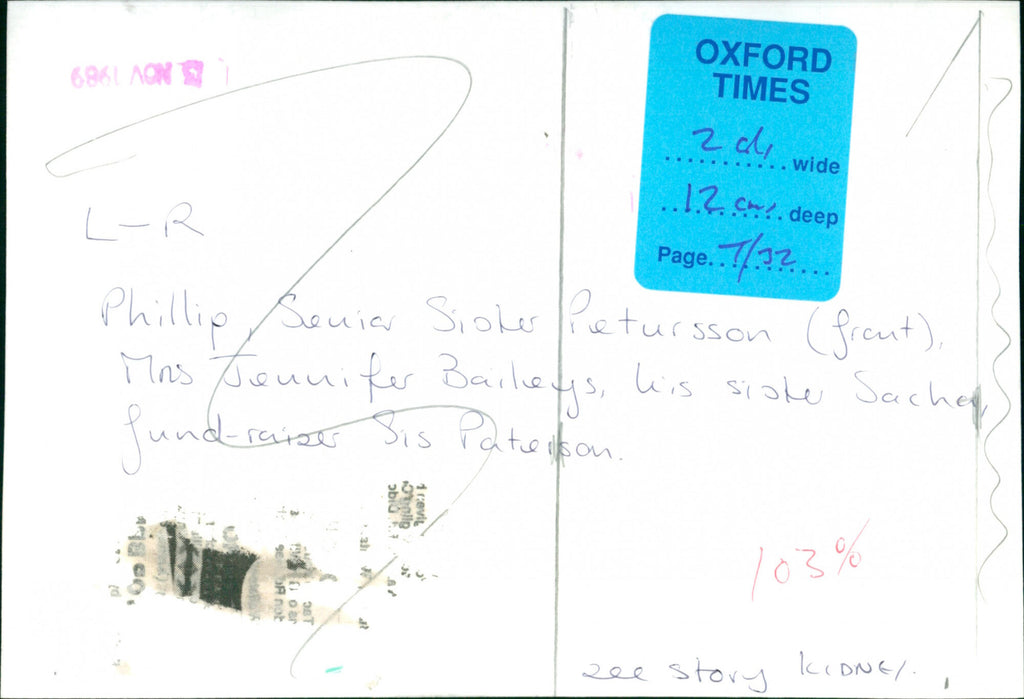 NOV 1989
OXFORD
TIMES
2 cl, wide
12 cms, deep
Page T/32
L-R
Phillip, Senior Sister Petursson (front),
Mrs Jennifer Baileys, his sister Sacha,
fund-raiser Sis Paterson.
103%
see story KIDNEY.